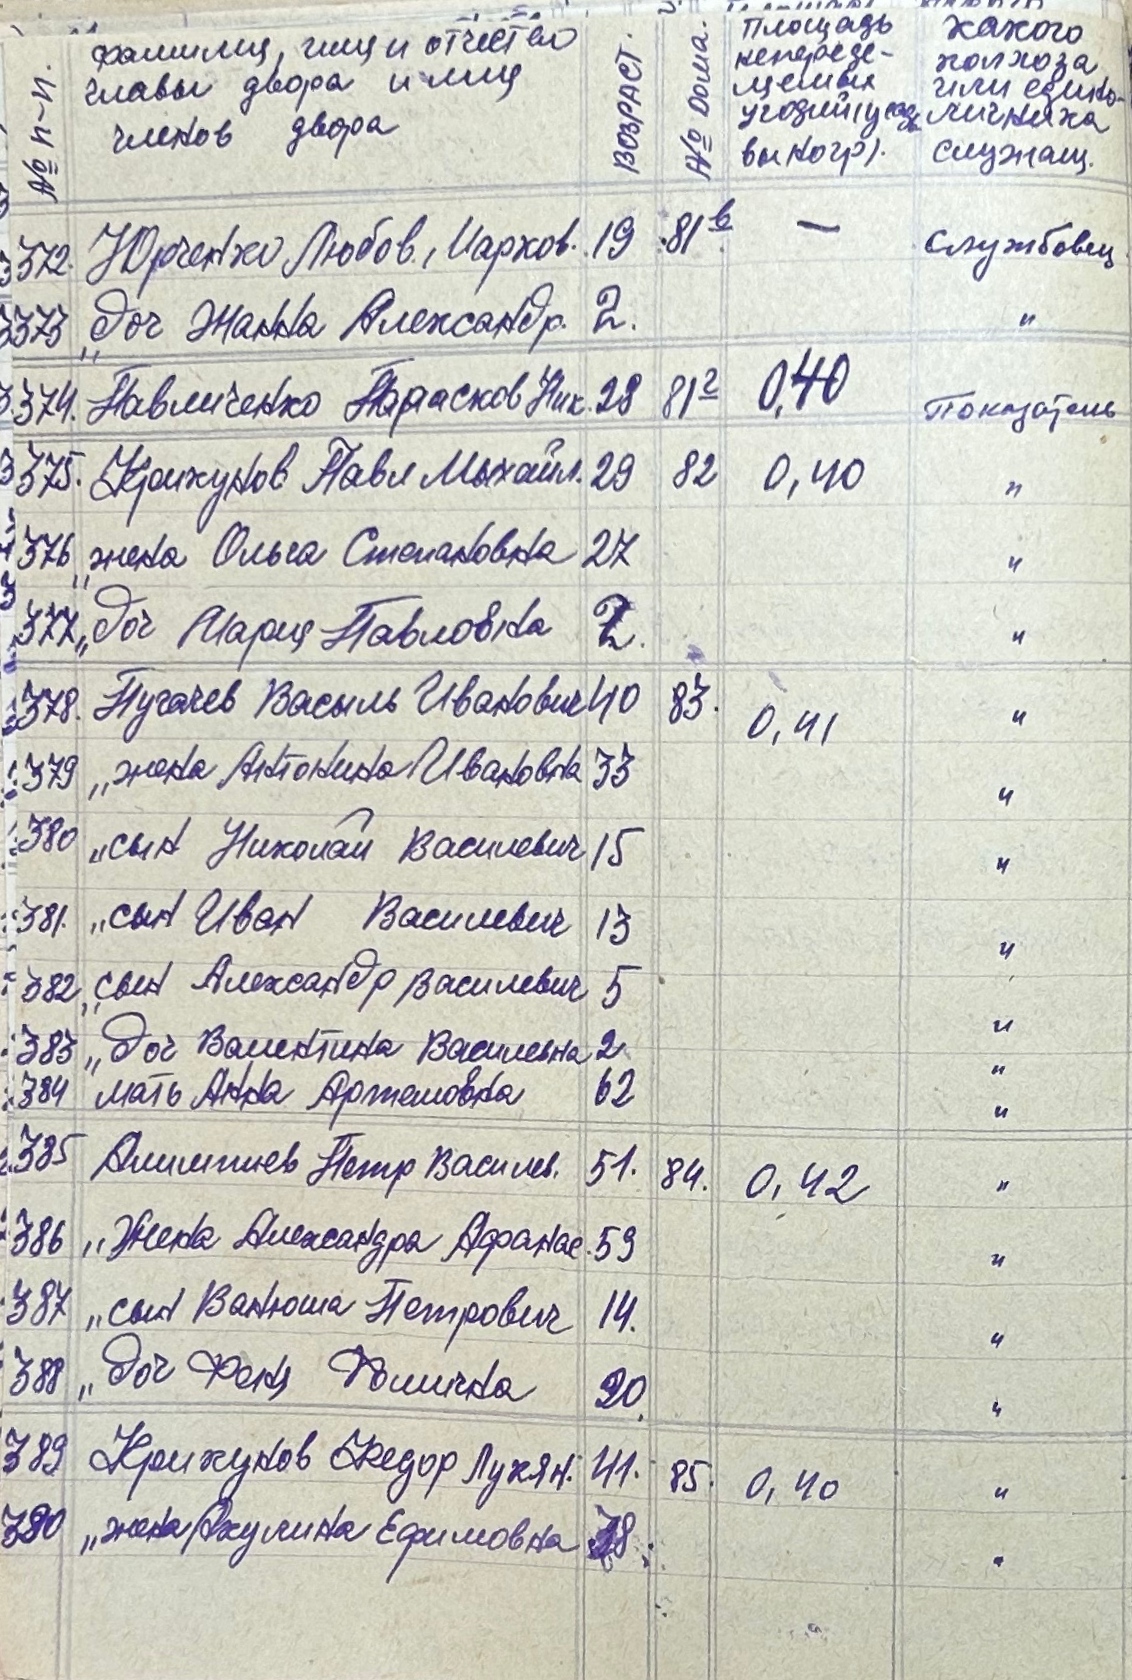 № п-п.
фамилия, имя и отчество
главы двора и имя
членов двора
ВОЗРАСТ.
№ Дома.
Площадь
непереде-
угодий (сад,
виногр).
какого
колхоза
или едино-
личника
служащ.
372. Юрченко Любов, Марков. 19 81в — Службовец
373 " доч Жанна Александр. 2. "
374. Павличенко Парасков Ник. 28 81г 0,40 Показатель
375. Крикунов Павл Мыхайл. 29 82 0,40 "
376 " жена Ольга Степановна 27 "
377 " доч Мария Павловна 2. "
378. Пугачев Василь Иванович 40 83. 0,41 "
379 " жена Антонина Ивановна 33 "
380 " сын Николай Василевич 15 "
381. " сын Иван Василевич 13 "
382 " сын Александр Василевич 5 "
383 " доч Валентина Василевна 2 "
384 мать Анна Артемовна 62 "
385 Алимпиев Петр Василев. 51. 84. 0,42 "
386 " Жена Александра Афанас. 59 "
387 " сын Ванюша Петрович 14. "
388 " доч 20. "
389 Крикунов Федор Лукян. 41. 85. 0,40 "
390 " жена Акулина Ефимовна 38. "